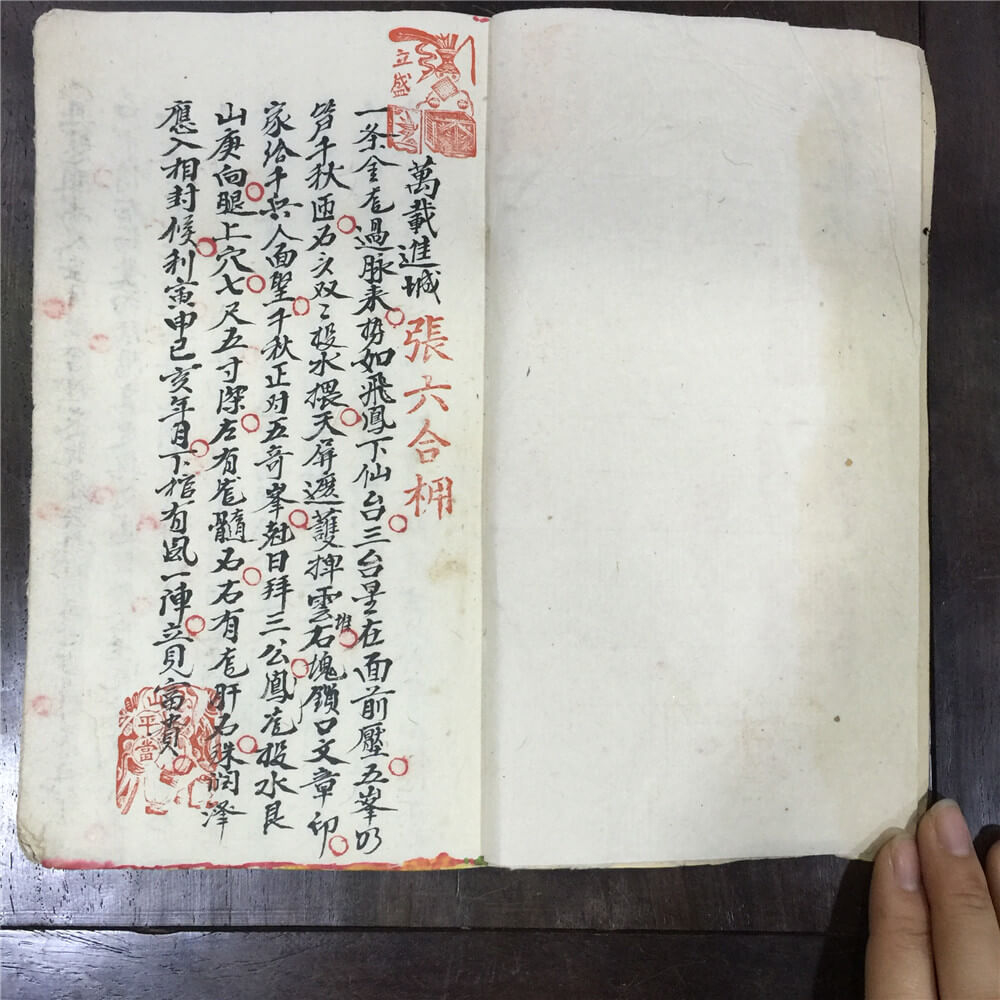 萬載進城 張六合柙
一条金龙過脉来势如飛鳳下仙台三台星在面前壓五峯仍
笞千秋 石 双〻投水提天屏遮護捭雲堆石塊鎖口文章印
家给千兵人面堅千秋正对五奇峯尅日拜三公鳳龙投水艮
山庚向腿上穴七尺五寸深左有龙髓石右有龙肝石珠润泽
應入相封候利寅申巳亥年月下棺有風一陣立見富貴
立盛
山平當